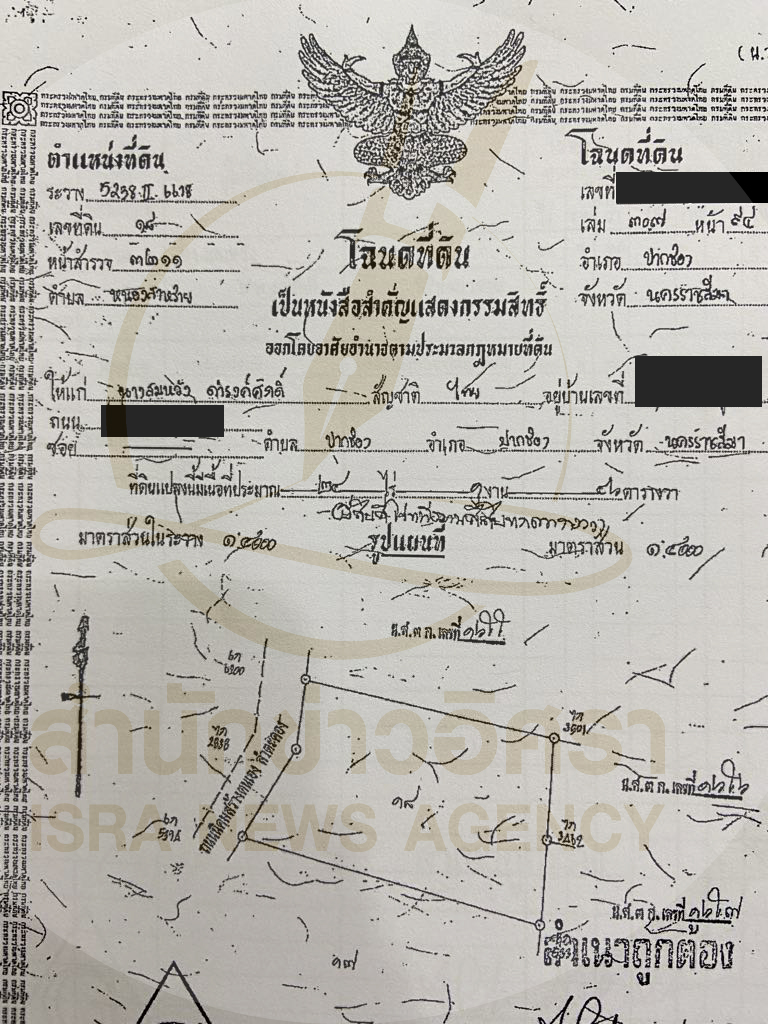 (น.
กระทรวงมหาดไทย กรมที่ดิน กระทรวงมหาดไทย กรมที่ดิน
ตำแหน่งที่ดิน
ระวาง 5238 II
เลขที่ดิน ๑๘
หน้าสำรวจ ๓๒๑๑
ตำบล หนองสาหร่าย
โฉนดที่ดิน
เลขที่
เล่ม ๓๐๗ หน้า ๙๔
อำเภอ ปากช่อง
จังหวัด นครราชสีมา
โฉนดที่ดิน
เป็นหนังสือสำคัญแสดงกรรมสิทธิ์
ออกโดยอาศัยอำนาจตามประมวลกฎหมายที่ดิน
ให้แก่ นางสมหวัง ดำรงค์ศักดิ์ สัญชาติ ไทย อยู่บ้านเลขที่
ถนน
ซอย ตำบล ปากช่อง อำเภอ ปากช่อง จังหวัด นครราชสีมา
ที่ดินแปลงนี้มีเนื้อที่ประมาณ ๒๔ ไร่ งาน ตารางวา
มาตราส่วนในระวาง ๑:๔๐๐๐ รูปแผนที่ มาตราส่วน ๑:๔๐๐๐
น.ส.๓ ก. เลขที่
สำนักข่าวอิศรา
ISRA NEWS AGENCY
น.ส.๓ ก. เลขที่
๑๘
น.ส.๓ ก. เลขที่
สำเนาถูกต้อง
๑๗